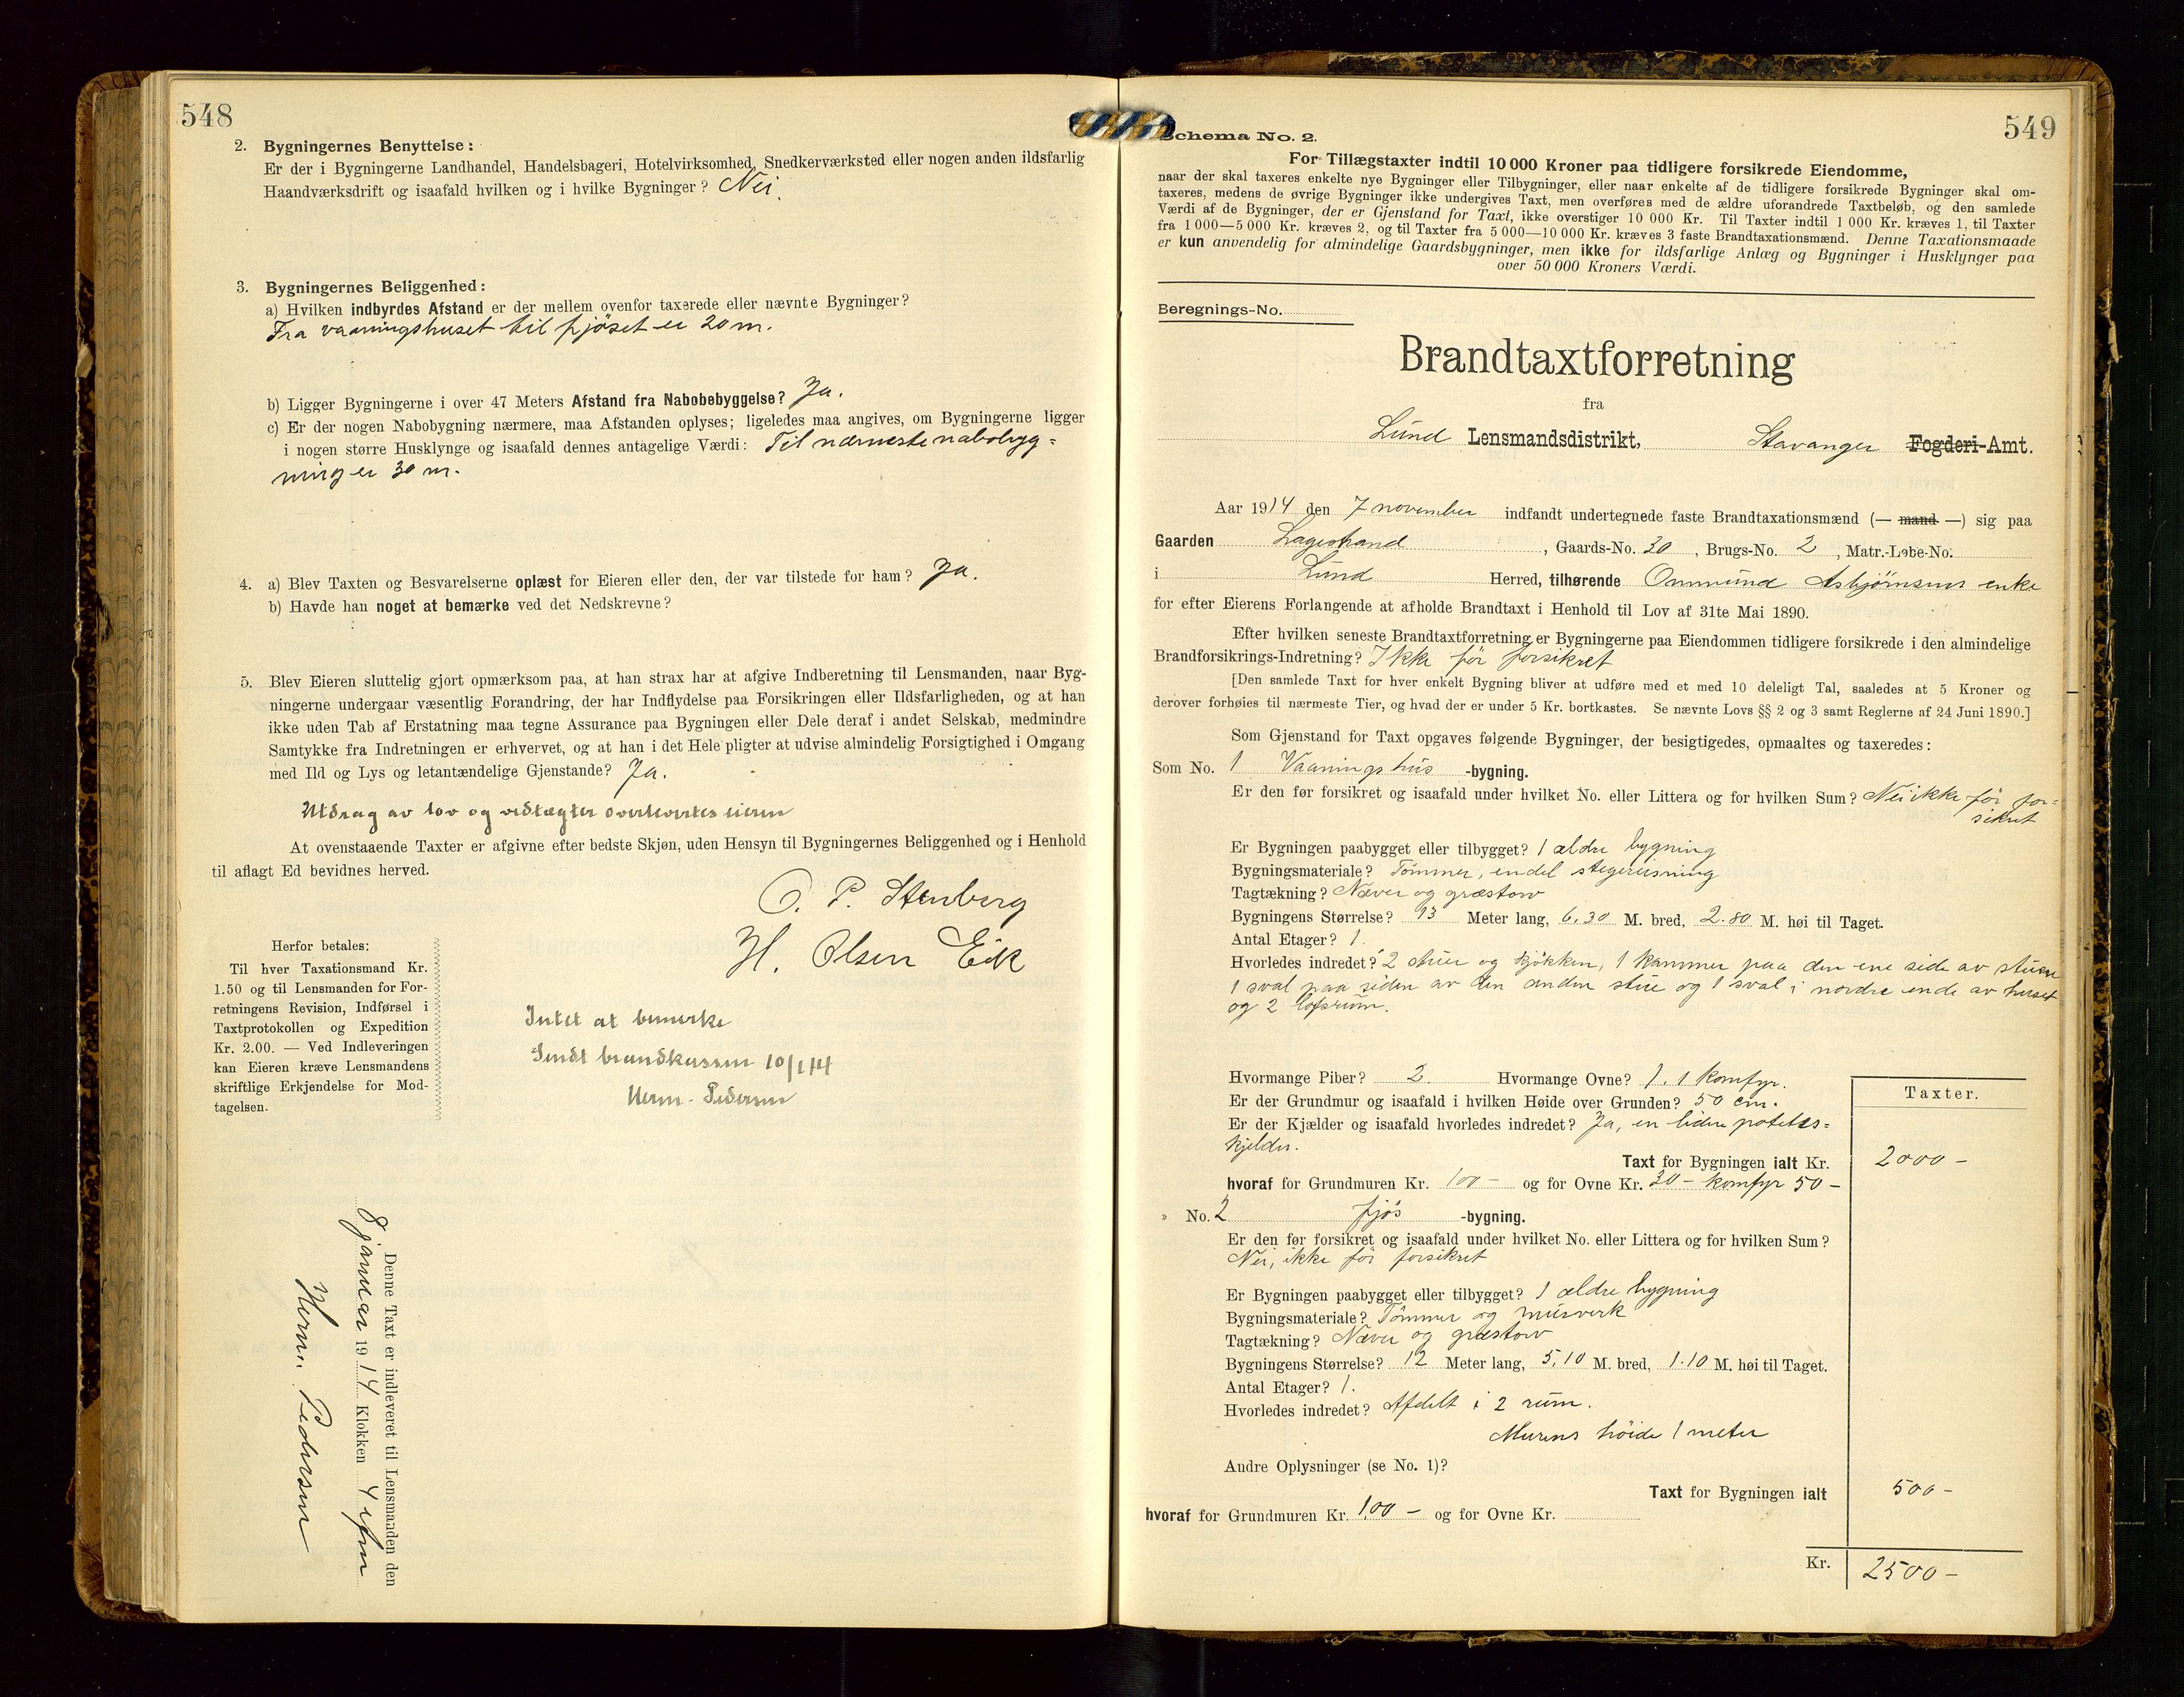 548
2. Bygningernes Benyttelse:
Er der i Bygningerne Landhandel, Handelsbageri, Hotelvirksomhed, Snedkerværksted eller nogen anden ildsfarlig
Haandværksdrift og isaafald hvilken og i hvilke Bygninger? Nei.
3. Bygningernes Beliggenhed:
a) Hvilken indbyrdes Afstand er der mellem ovenfor taxerede eller nævnte Bygninger?
Fra vaaningshuset til fjøset er 20 m.
b) Ligger Bygningerne i over 47 Meters Afstand fra Nabobebyggelse? Ja.
c) Er der nogen Nabobygning nærmere, maa Afstanden oplyses; ligeledes maa angives, om Bygningerne ligger
i nogen større Husklynge og isaafald dennes antagelige Værdi: Til nærmeste nabobyg=
ning er 30 m.
4. a) Blev Taxten og Besvarelserne oplæst for Eieren eller den, der var tilstede for ham? Ja.
b) Havde han noget at bemærke ved det Nedskrevne?
5. Blev Eieren sluttelig gjort opmærksom paa, at han strax har at afgive Indberetning til Lensmanden, naar Byg-
ningerne undergaar væsentlig Forandring, der har Indflydelse paa Forsikringen eller Ildsfarligheden, og at han
ikke uden Tab af Erstatning maa tegne Assurance paa Bygningen eller Dele deraf i andet Selskab, medmindre
Samtykke fra Indretningen er erhvervet, og at han i det Hele pligter at udvise almindelig Forsigtighed i Omgang
med Ild og Lys og letantændelige Gjenstande? Ja.
Utdrag av lov og vedtægter overlevertes eieren
At ovenstaaende Taxter er afgivne efter bedste Skjøn, uden Hensyn til Bygningernes Beliggenhed og i Henhold
til aflagt Ed bevidnes herved.
O. P. Stenberg
H. Olsen Eik
Herfor betales:
Til hver Taxationsmand Kr.
1.50 og til Lensmanden for For-
retningens Revision, Indførsel i
Taxtprotokollen og Expedition
Kr. 2.00. — Ved Indleveringen
kan Eieren kræve Lensmandens
skriftlige Erkjendelse for Mod-
tagelsen.
Intet at bemerke
Sendt brandkassen 10/1 14
Herm. Pedersen
Denne Taxt er indleveret til Lensmanden den
8 januar 1914 Klokken 4 efm
Herm. Pedersen
549
Schema No. 2.
For Tillægstaxter indtil 10 000 Kroner paa tidligere forsikrede Eiendomme,
naar der skal taxeres enkelte nye Bygninger eller Tilbygninger, eller naar enkelte af de tidligere forsikrede Bygninger skal om-
taxeres, medens de øvrige Bygninger ikke undergives Taxt, men overføres med de ældre uforandrede Taxtbeløb, og den samlede
Værdi af de Bygninger, der er Gjenstand for Taxt, ikke overstiger 10 000 Kr. Til Taxter indtil 1 000 Kr. kræves 1, til Taxter
fra 1 000—5 000 Kr. kræves 2, og til Taxter fra 5 000—10 000 Kr. kræves 3 faste Brandtaxationsmænd. Denne Taxationsmaade
er kun anvendelig for almindelige Gaardsbygninger, men ikke for ildsfarlige Anlæg og Bygninger i Husklynger paa
over 50 000 Kroners Værdi.
Beregnings-No.
Brandtaxtforretning
fra
Lund Lensmandsdistrikt, Stavanger Fogderi-Amt.
Aar 1914 den 7 november indfandt undertegnede faste Brandtaxationsmænd (— mand —) sig paa
Gaarden Lagestrand, Gaards-No. 30, Brugs-No. 2, Matr.-Løbe-No.
i Lund Herred, tilhørende Ommund Asbjørnsens enke
for efter Eierens Forlangende at afholde Brandtaxt i Henhold til Lov af 31te Mai 1890.
Efter hvilken seneste Brandtaxtforretning er Bygningerne paa Eiendommen tidligere forsikrede i den almindelige
Brandforsikrings-Indretning? Ikke før forsikret
[Den samlede Taxt for hver enkelt Bygning bliver at udføre med et med 10 deleligt Tal, saaledes at 5 Kroner og
derover forhøies til nærmeste Tier, og hvad der er under 5 Kr. bortkastes. Se nævnte Lovs §§ 2 og 3 samt Reglerne af 24 Juni 1890.]
Som Gjenstand for Taxt opgaves følgende Bygninger, der besigtigedes, opmaaltes og taxeredes:
Som No. 1 Vaaningshus -bygning.
Er den før forsikret og isaafald under hvilket No. eller Littera og for hvilken Sum? Nei ikke før for=
sikret
Er Bygningen paabygget eller tilbygget? 1 ældre bygning
Bygningsmateriale? Tømmer, endel stegereisning
Tagtækning? Næver og græstorv
Bygningens Størrelse? 13 Meter lang, 6,30 M. bred, 2.80 M. høi til Taget.
Antal Etager? 1.
Hvorledes indredet? 2 stuer og kjøkken, 1 kammer paa den ene side av stuen
1 sval paa siden av den anden stue og 1 sval i nordre ende av huset
og 2 lofsrum.
Hvormange Piber? 2. Hvormange Ovne? 1. 1 komfyr.
Er der Grundmur og isaafald i hvilken Høide over Grunden? 50 cm.
Er der Kjælder og isaafald hvorledes indredet? Ja, en liden potetes=
kjelder.
Taxter.
Taxt for Bygningen ialt Kr. 2000 –
hvoraf for Grundmuren Kr. 100 – og for Ovne Kr. 30 – komfyr 50 –
» No. 2 fjøs -bygning.
Er den før forsikret og isaafald under hvilket No. eller Littera og for hvilken Sum?
Nei, ikke før forsikret
Er Bygningen paabygget eller tilbygget? 1 ældre bygning
Bygningsmateriale? Tømmer og murverk
Tagtækning? Næver og græstorv
Bygningens Størrelse? 12 Meter lang, 5,10 M. bred, 1.10 M. høi til Taget.
Antal Etager? 1.
Hvorledes indredet? Afdelt i 2 rum.
Murens høide 1 meter
Andre Oplysninger (se No. 1)?
Taxt for Bygningen ialt 500 –
hvoraf for Grundmuren Kr. 100 – og for Ovne Kr.
Kr. 2500 –